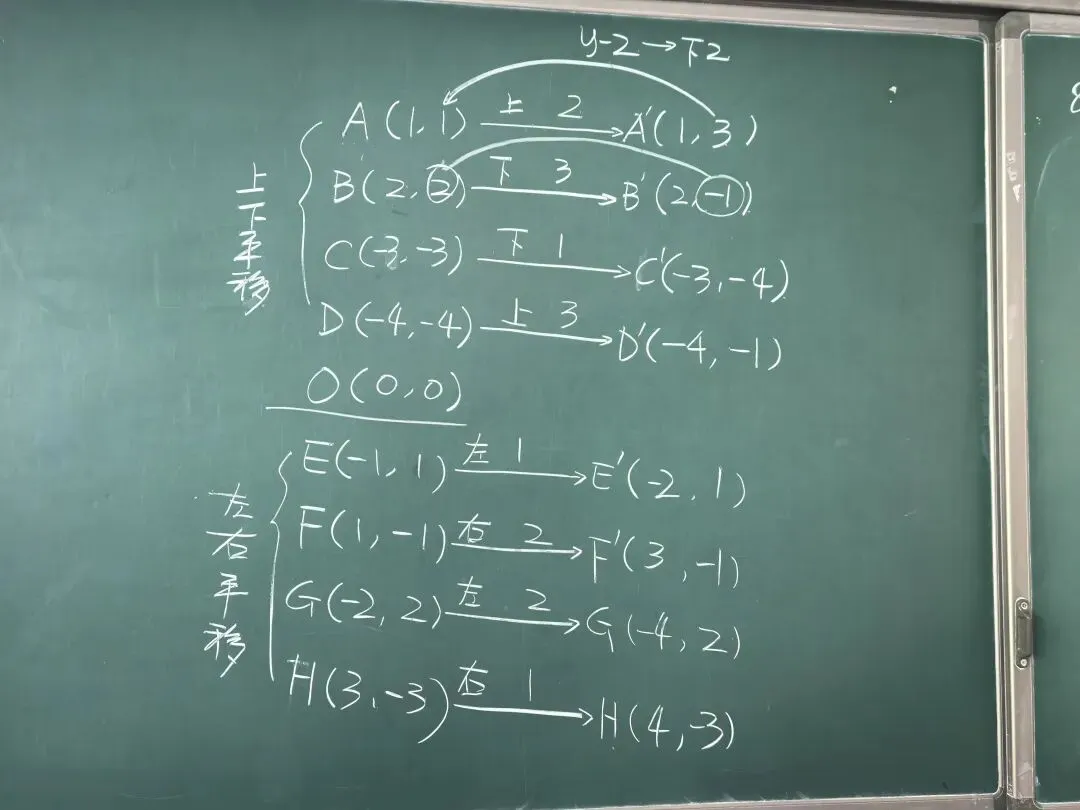 y-2→下2
A(1,1) 上 2 → A'(1,3)
B(2,2) 下 3 → B'(2,-1)
C(-3,-3) 下 1 → C'(-3,-4)
D(-4,-4) 上 3 → D'(-4,-1)
上下平移
O(0,0)
E(-1,1) 左 1 → E'(-2,1)
F(1,-1) 右 2 → F'(3,-1)
G(-2,2) 左 2 → G(-4,2)
H(3,-3) 右 1 → H(4,-3)
左右平移